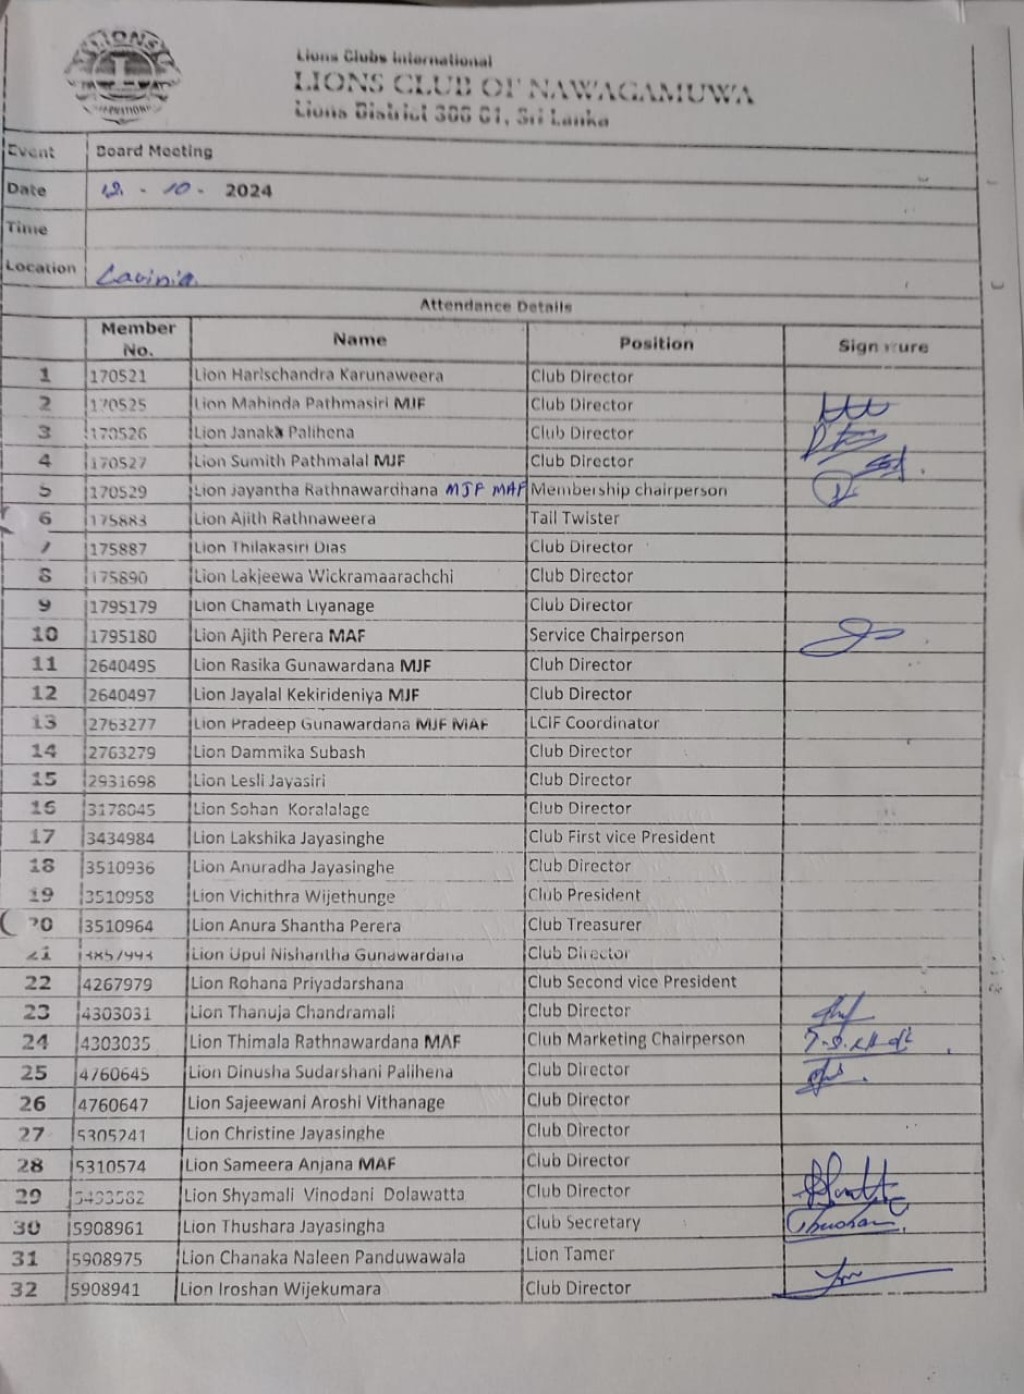 LIONS
Lions Clubs International
LIONS CLUB OF NAWAGAMUWA
Lions District 306 C1, Sri Lanka
Event Board Meeting
Date 12 - 10 - 2024
Time
Location Lavinia
Attendance Details
Member No. Name Position Signature
1 170521 Lion Harischandra Karunaweera Club Director
2 170525 Lion Mahinda Pathmasiri MJF Club Director
3 170526 Lion Janaka Palihena Club Director
4 170527 Lion Sumith Pathmalal MJF Club Director
5 170529 Lion Jayantha Rathnawardhana MJF MAF Membership chairperson
6 175883 Lion Ajith Rathnaweera Tail Twister
7 175887 Lion Thilakasiri Dias Club Director
8 175890 Lion Lakjeewa Wickramaarachchi Club Director
9 1795179 Lion Chamath Liyanage Club Director
10 1795180 Lion Ajith Perera MAF Service Chairperson
11 2640495 Lion Rasika Gunawardana MJF Club Director
12 2640497 Lion Jayalal Kekirideniya MJF Club Director
13 2763277 Lion Pradeep Gunawardana MJF MAF LCIF Coordinator
14 2763279 Lion Dammika Subash Club Director
15 2931698 Lion Lesli Jayasiri Club Director
16 3178045 Lion Sohan Koralalage Club Director
17 3434984 Lion Lakshika Jayasinghe Club First vice President
18 3510936 Lion Anuradha Jayasinghe Club Director
19 3510958 Lion Vichithra Wijethunge Club President
20 3510964 Lion Anura Shantha Perera Club Treasurer
21 Lion Upul Nishantha Gunawardana Club Director
22 4267979 Lion Rohana Priyadarshana Club Second vice President
23 4303031 Lion Thanuja Chandramali Club Director
24 4303035 Lion Thimala Rathnawardana MAF Club Marketing Chairperson
25 4760645 Lion Dinusha Sudarshani Palihena Club Director
26 4760647 Lion Sajeewani Aroshi Vithanage Club Director
27 5305241 Lion Christine Jayasinghe Club Director
28 5310574 Lion Sameera Anjana MAF Club Director
29 Lion Shyamali Vinodani Dolawatta Club Director
30 5908961 Lion Thushara Jayasingha Club Secretary
31 5908975 Lion Chanaka Naleen Panduwawala Lion Tamer
32 5908941 Lion Iroshan Wijekumara Club Director